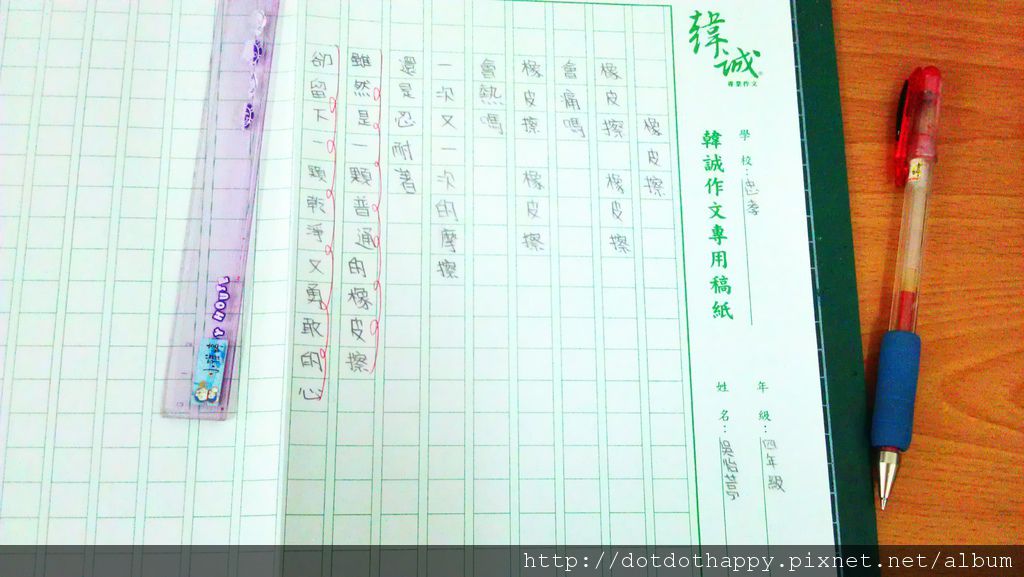 韓誠
專業作文
學校：忠孝
韓誠作文專用稿紙
年級：四年級
姓名：吳怡葶
橡皮擦
橡皮擦 橡皮擦
會痛嗎
橡皮擦 橡皮擦
會熱嗎
一次又一次的摩擦
還是忍耐著
雖然是一顆普通的橡皮擦
卻留下一顆乾淨又勇敢的心
http://dotdothappy.pixnet.net/album